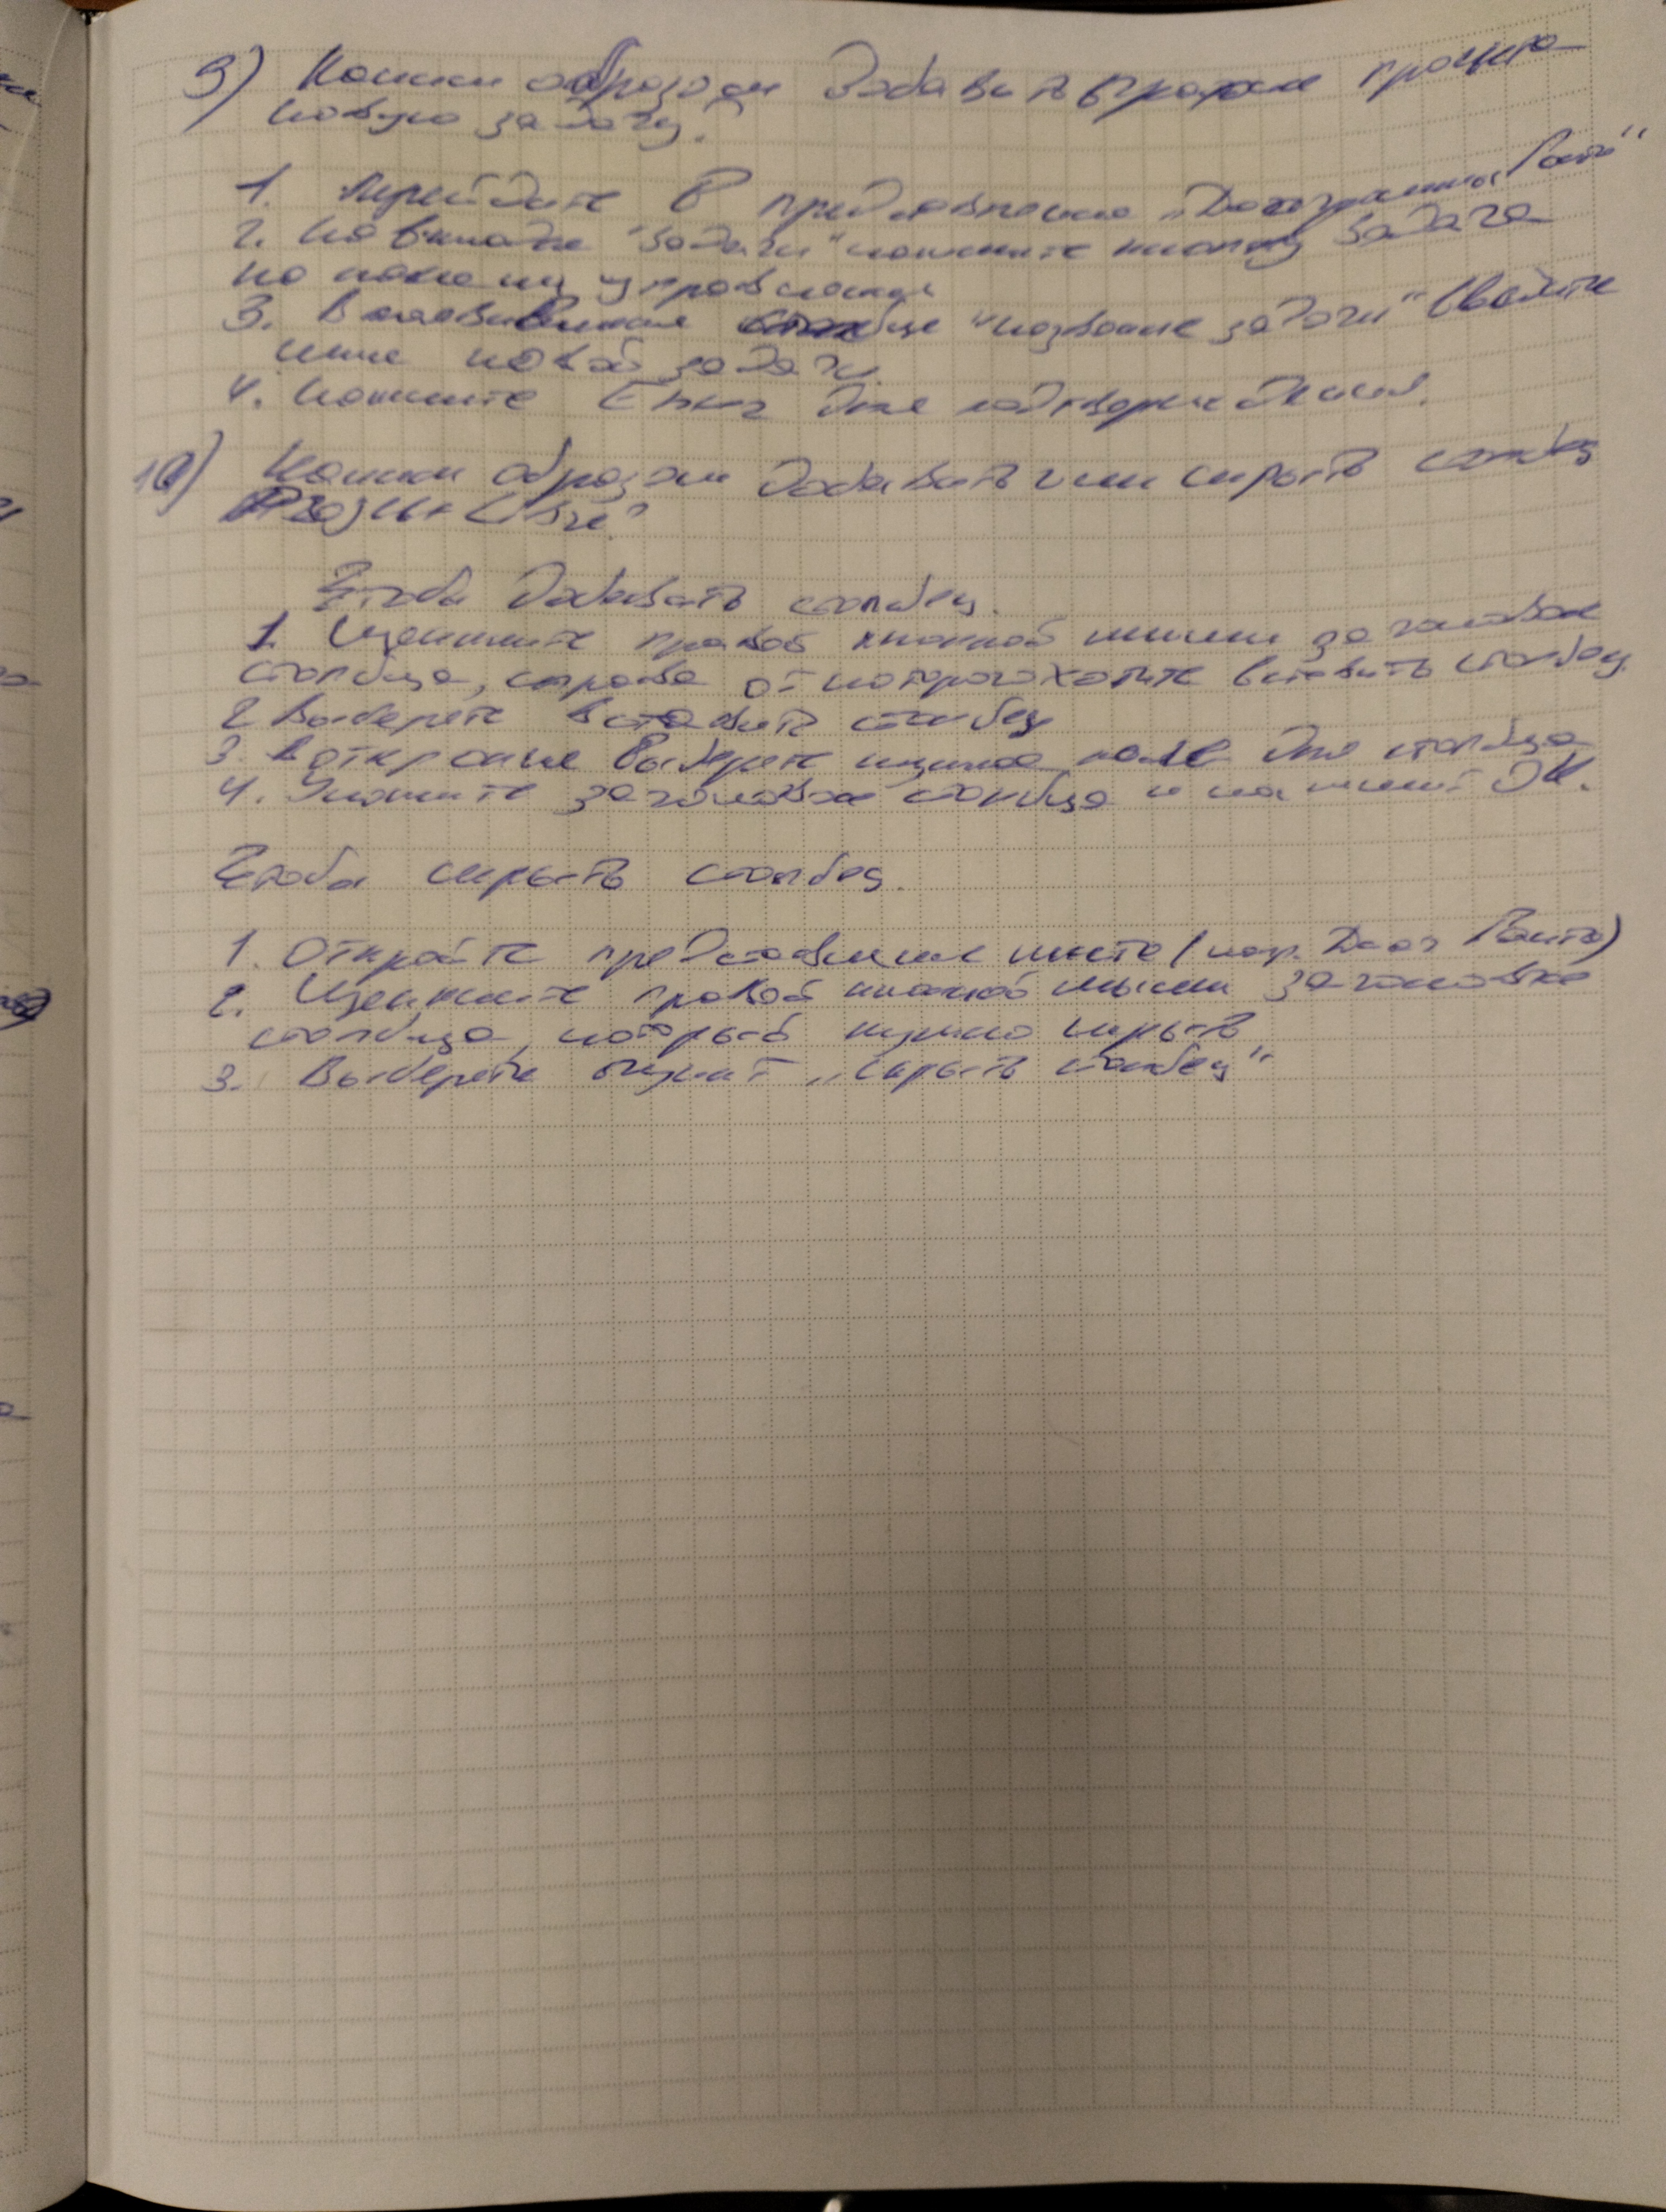 9) Каким образом добавить в график проекта
новую задачу?
1. Перейдите в представление „Диаграмма Ганта"
2. На вкладке "Задачи" нажмите кнопку Задача
на панели управления
3. В появившемся столбце "название задачи" введите
имя новой задачи.
4. Нажмите Enter для подтверждения.
10) Каким образом добавить или скрыть столбец
в ProjectLibre?
Чтобы добавить столбец.
1. Щелкните правой кнопкой мыши заголовок
столбца, справа от которого хотите вставить столбец.
2 Выберете вставить столбец
3. В открывшемся выберете нужное поле для столбца
4. Укажите заголовок столбца и нажмите ОК.
Чтобы скрыть столбец.
1. Откройте представление листа (напр. Диаг Ганта)
2. Щелкните правой кнопкой мыши заголовок
столбца, который нужно скрыть
3. Выберете пункт „скрыть столбец"